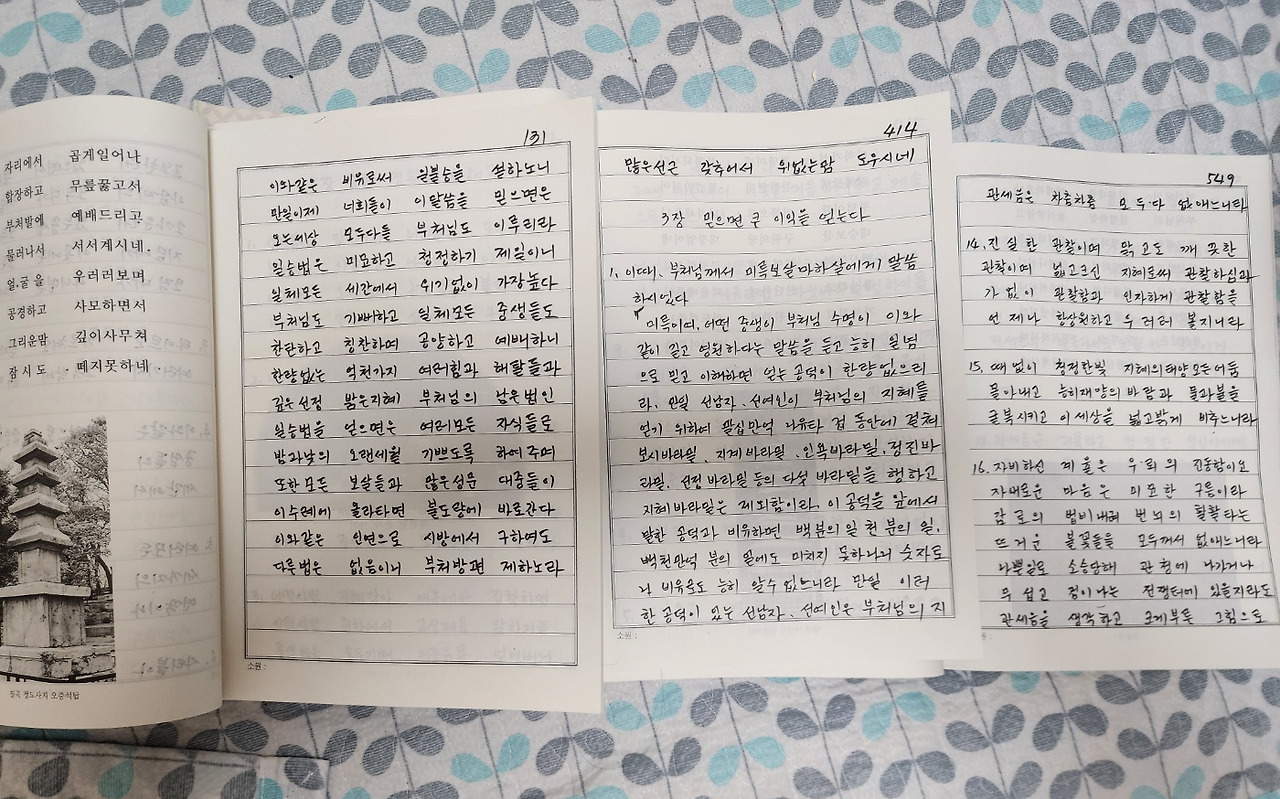 자리에서 곱게일어나
합장하고 무릎꿇고서
부처발에 예배드리고
물러나서 서서계시네.
얼굴을 우러러보며
공경하고 사모하면서
그리운맘 깊이사무쳐
잠시도 떼지못하네.
칠곡 정도사지 오층석탑
131
이와같은 비유로써 일불승을 설하노니
만일이제 너희들이 이말씀을 믿으면은
오는세상 모두다들 부처님도 이루리라
일승법은 미묘하고 청정하기 제일이니
일체모든 세간에서 위기없이 가장높다
부처님도 기뻐하고 일체모든 중생들도
찬탄하고 칭찬하며 공양하고 예배하니
한량없는 억천가지 여러힘과 해탈들과
깊은선정 밝은지혜 부처님의 남은법인
일승법을 얻으면은 여러모든 자식들로
밤과낮의 오랜세월 기쁘도록 하여주며
또한모든 보살들과 많은성문 대중들이
이수레에 올라타면 불도량에 바로간다
이와같은 인연으로 시방에서 구하여도
다른법은 없음이니 부처방편 제하노라
소원 :
414
많은선근 갖추어서 위없는맘 도우시네
3장 믿으면 큰 이익을 얻는다
1. 이때, 부처님께서 미륵보살마하살에게 말씀
하시었다
미륵이여, 어떤 중생이 부처님 수명이 이와
같이 길고 영원하다는 말씀을 듣고 능히 일념
으로 믿고 이해하면 얻는 공덕이 한량없으리
라. 만일 선남자, 선여인이 부처님의 지혜를
얻기 위하여 팔십만억 나유타 겁 동안에 걸쳐
보시바라밀, 지계 바라밀, 인욕바라밀, 정진바
라밀, 선정 바라밀 등의 다섯 바라밀을 행하고
지혜바라밀은 제외함이라. 이 공덕을 앞에서
말한 공덕과 비유하면 백분의일 천 분의 일,
백천만억 분의 일에도 미치지 못하나니 숫자로
나 비유로도 능히 알수 없느니라 만일 이러
한 공덕이 있는 선남자, 선여인은 부처님의 지
소원 :
549
관세음은 차츰차츰 모두다 없애느니라
14. 진실한 관찰이며 맑고도 깨끗한
관찰이며 넓고크신 지혜로써 관찰하심과
가없이 관찰함과 인자하게 관찰함을
언제나 항상원하고 우러러 볼지니라
15. 때없이 청정한빛 지혜의태양모든어둠
몰아내고 능히재앙의 바람과 물과불을
굴복시키고 이세상을 넓고밝게 비추느니라
16. 자비하신 계율은 우뢰의 진동함이오
자애로운 마음은 미묘한 구름이라
감로의 법비내려 번뇌의 활활타는
뜨거운 불꽃들을 모두꺼서 없애느니라
나쁜일로 소송당해 관청에 나가거나
무섭고 겁이나는 전쟁터에 있을지라도
관세음을 생각하고 크게부른 그힘으로